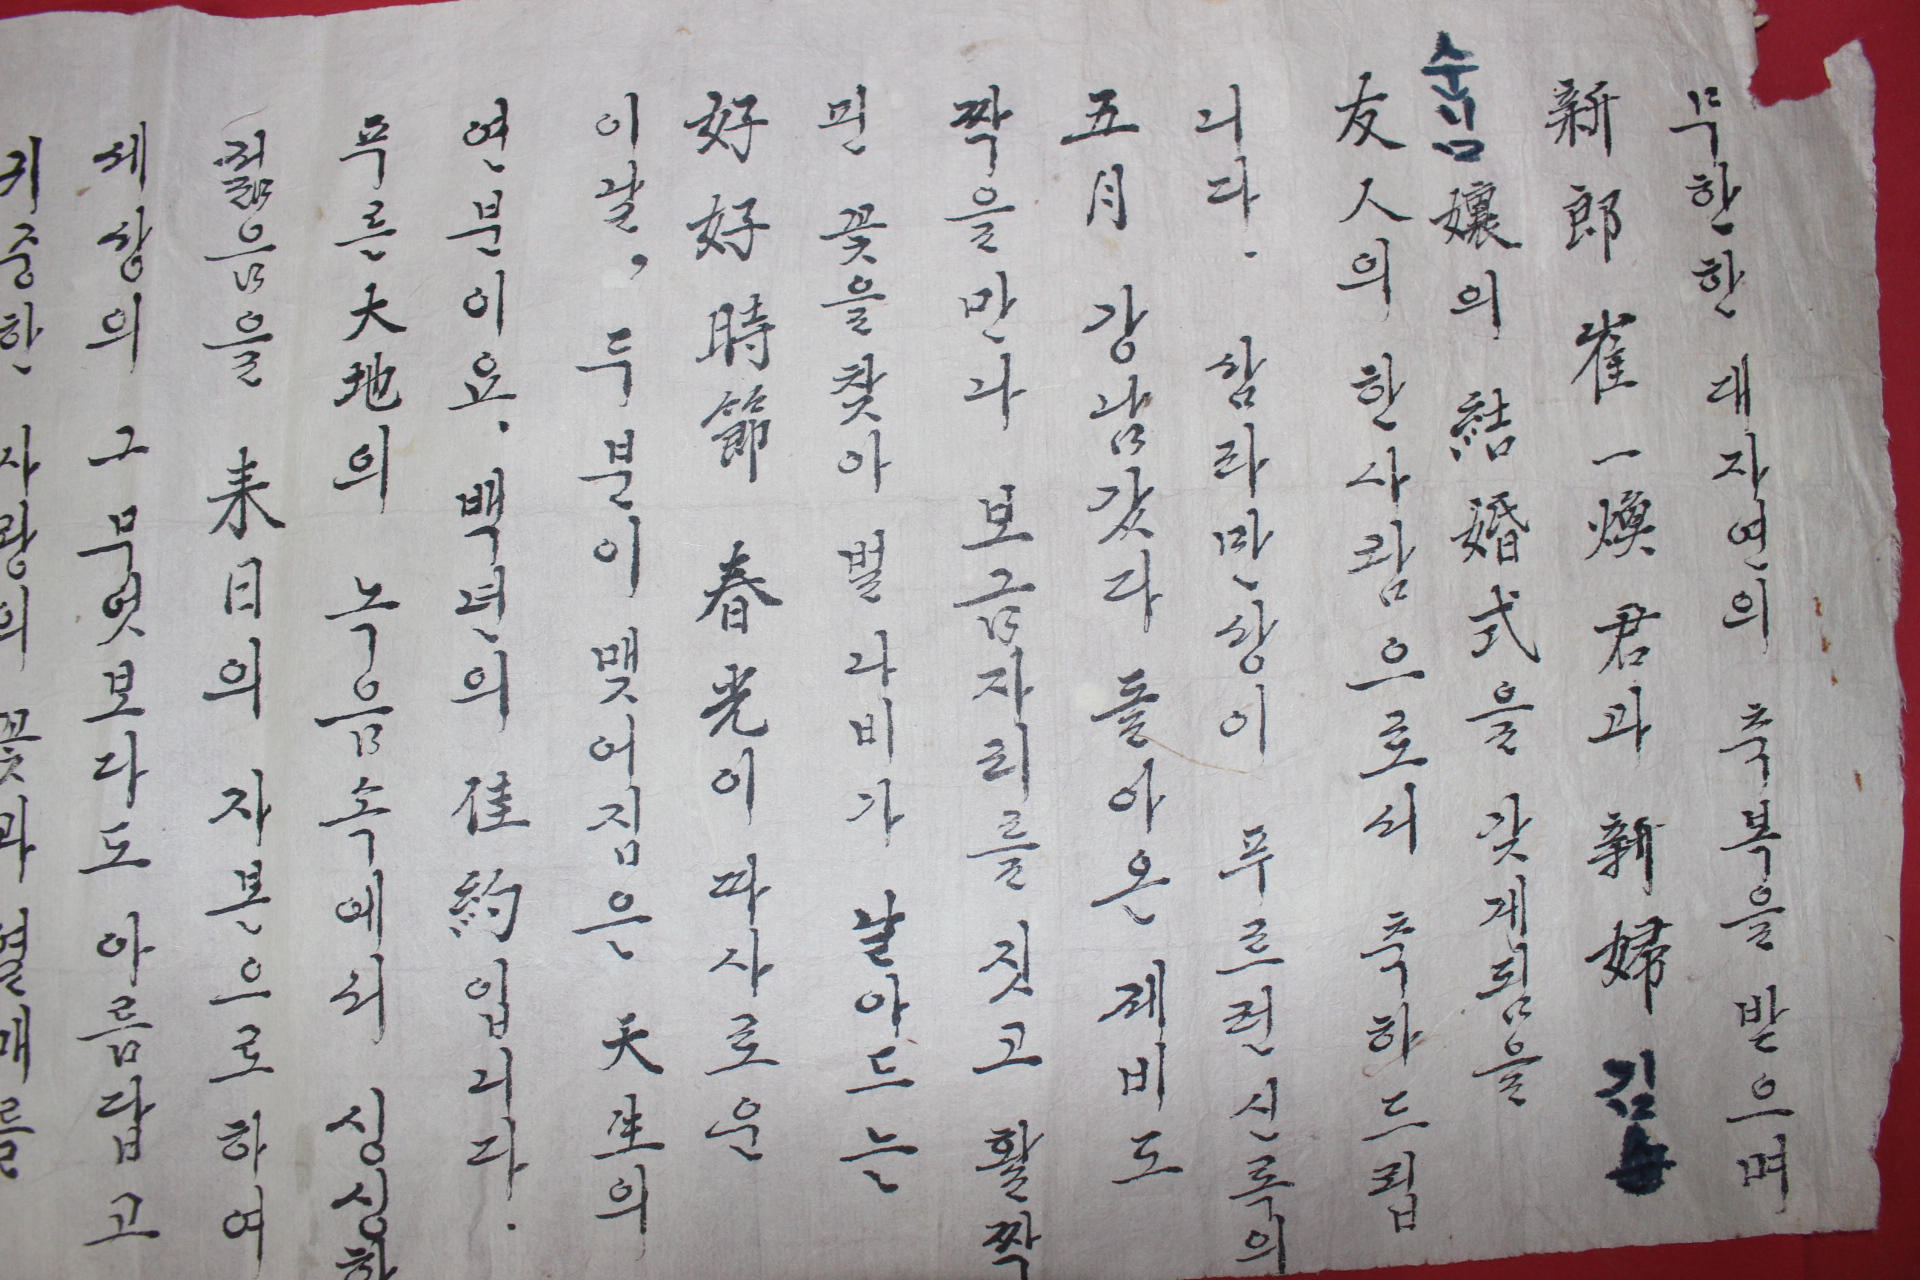 무한한 대자연의 축복을 받으며
新郎 崔一煥君과 新婦 김
순님孃의 結婚式을 갖게됨을
友人의 한사람으로서 축하드립
니다. 삼라만상이 푸르런 신록의
五月 강남갔다 돌아온 제비도
짝을 만나 보금자리를 짓고 활짝
핀 꽃을 찾아 벌 나비가 날아드는
好好時節 春光이 따사로운
이날, 두분이 맺어짐은 天生의
연분이요. 백년의 佳約입니다.
푸른大地의 녹음속에서 싱싱한
젊음을 来日의 자본으로하여
세상의 그 무엇보다도 아름답고
귀중한 사랑의 꽃과 열매를